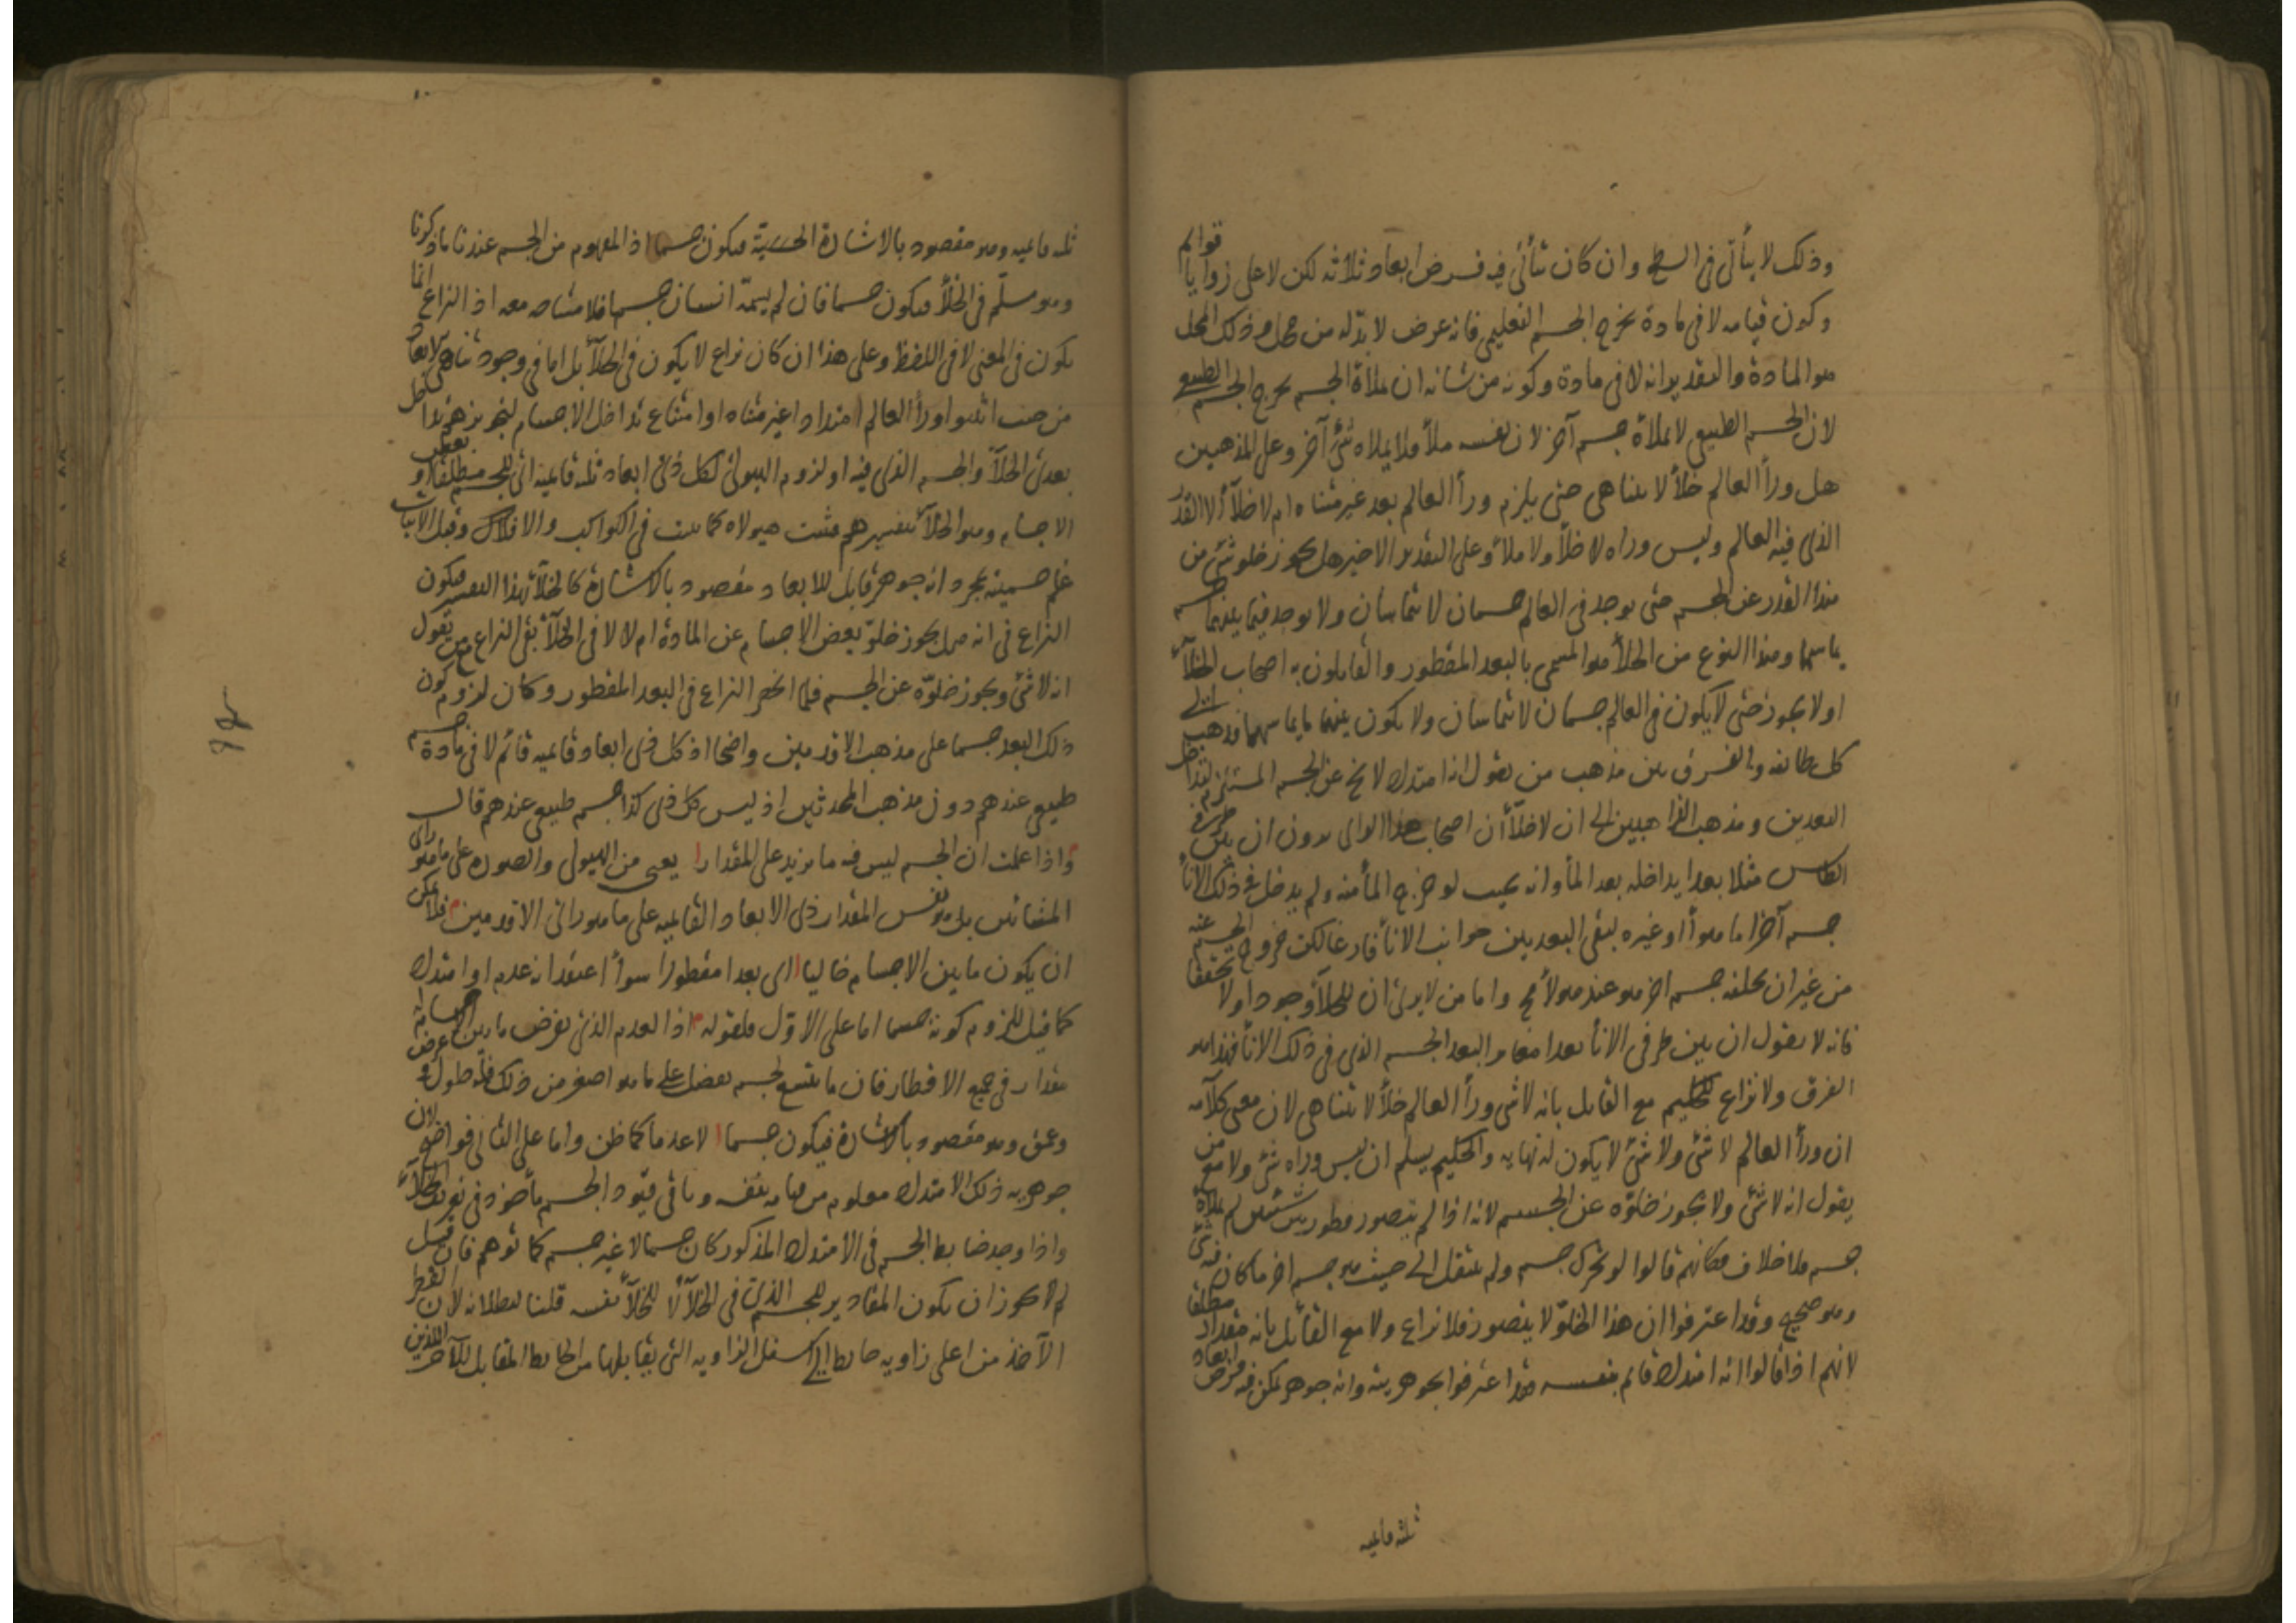 وذلك لا يتأتى فى السطح وان كان يتأتى فيه فرض ابعاد ثلاثه لكن لا على زوايا قوائم
وكون قيامه لا فى مادة يخرج الجسم التعليمى فانه عرض لا بد له من محل وذلك المحل
هو المادة والتقدير انه لا فى مادة وكونه من شانه ان يملأه الجسم يخرج الجسم الطبيعى
لان الجسم الطبيعى لا يملأه جسم آخر لان نفسه ملأ ولا يملاه شئ آخر وعلى المذهبين
هل ورأ العالم خلأ لا يتناهى حتى يلزم ورأ العالم بعد غير متناه ام لا خلأ الا القدر
الذى فيه العالم وليس وراه لا خلأ ولا ملأ وعلى التقدير الاخير هل يجوز خلو شئ من
هذا القدر عن الجسم حتى يوجد فى العالم جسمان لا يتماسان ولا يوجد فيما بينهما جسم
يماسهما وهذا النوع من الخلأ هو المسمى بالبعد المفطور والقايلون به اصحاب الخلأ
اولا يجوز حتى لا يكون فى العالم جسمان لا يتماسان ولا يكون بينهما ما يماسهما فذهب الى
كل طائفه والفرق بين مذهب من يقول انه امتداد لا يخ عن الجسم المستلزم لتداخل
البعدين ومذهب الذاهبين الى ان لا خلأ أن اصحاب هذا الراى يرون ان بين طرفى
الكاس مثلا بعدا يداخله بعد المأ وانه بحيث لو خرج المأ منه ولم يدخل فى ذلك الانأ
جسم آخر اما هوأ او غيره لبقى البعد بين جوانب الانأ فارغا لكن خروج الجسم عنه
من غير ان يخلفه جسم اخر هو عند هولأ مح واما من لا يرى ان للخلأ وجودا ولا تحققا
فانه لا يقول ان بين طرفى الانأ بعدا مغايرا لبعد الجسم الذى فى ذلك الانأ فهذا هو
الفرق ولا نزاع للحكيم مع القايل بانه لا شى ورأ العالم خلأ لا يتناهى لان معنى كلامه
ان ورأ العالم لا شئ ولا شئ لا يكون له نهايه والحكيم يسلم ان ليس وراه شئ ولا مع من
يقول انه لا شئ ولا يجوز خلوه عن الجسم لانه اذا لم يتصور مطور بين شيئين لم يملأه
جسم فلا خلاف فكانهم قالوا لو تحرك جسم ولم ينتقل الى حيث هو جسم اخر ما كان فيه شئ
وهو صحيح وقد اعترفوا ان هذا الخلو لا يتصور فلا نزاع ولا مع القائل بانه مقدار مطلقا
لانهم اذا قالوا انه امتداد قايم بنفسه فقد اعترفوا بجوهريته وانه جوهر يمكن فيه فرض ابعاد
ثلثه قايميه
ثله قايميه وهو مقصود بالاشارة الحسية فيكون جسما اذ المفهوم من الجسم عندنا ما ذكرنا
وهو مسلم فى الخلأ فيكون جسما فان لم يسمه انسان جسما فلا مشاحه معه اذ النزاع انما
يكون فى المعنى لا فى اللفظ وعلى هذا ان كان نزاع لا يكون فى الخلأ بل اما فى وجود تناهى الابعاد
من حيث اثبتوا ورأ العالم امتدادا غير متناه او امتناع تداخل الاجسام لتجويزهم تداخل
بعدى الخلأ والجسم الذى فيه او لزوم الهيولى لكل ذى ابعاد ثلثه قايميه اى للجسم مطلقا او لبعض
الاجسام وهو الخلأ بتفسيرهم فتثبت هيولاه كما يثبت فى الكواكب والافلاك وقبل الاثبات
علم جسميته بمجرد انه جوهر قابل للابعاد مقصود بالاشارة كالخلأ بهذا التفسير فيكون
النزاع فى انه هل يجوز خلو بعض الاجسام عن المادة ام لا لا فى الخلأ بقى النزاع مع من يقول
انه لا شئ ويجوز خلوه عن الجسم فلما انحصر النزاع فى البعد المفطور وكان لزوم كون
ذلك البعد جسما على مذهب الاقدمين واضحا اذ كل ذى ابعاد قايميه قائم لا فى مادة جسم
طبيعى عندهم دون مذهب المحدثين اذ ليس كل ذى كذا جسم طبيعى عندهم قال
واذا علمت ان الجسم ليس فيه ما يزيد على المقدار يعنى من الهيولى والصوره على ما هو راى
المشائين بل هو نفس المقدار ذى الابعاد القايميه على ما هو راى الاقدمين فلا يمكن
ان يكون ما بين الاجسام خاليا اى بعدا مفطورا سوأ اعتقد انه عدم او امتداد
كما قيل للزوم كونه جسما اما على الاول فلقوله اذ العدم الذى يفرض ما بين الاجسام له
مقدار فى جميع الاقطار فان ما يتسع لجسم يفضل على ما هو اصغر من ذلك فله طول وعرض
وعمق وهو مقصود بالاشارة فيكون جسما لا عدما كما ظن واما على الثانى فواضح لان
جوهريه ذلك الامتداد معلوم من قيامه بنفسه وباقى قيود الجسم مأخوذ فى تعريف الخلأ
واذا وجد ضابط الجسم فى الامتداد المذكور كان جسما لا غير جسم كما توهم فان قيل
لم لا يجوز ان يكون المقادير للجسم الذى فى الخلأ لا للخلأ نفسه قلنا لبطلانه لان القطر
الآخذ من اعلى زاويه حايط الى اسفل الزاويه التى يقابلها من الحايط المقابل للآخر اللذين